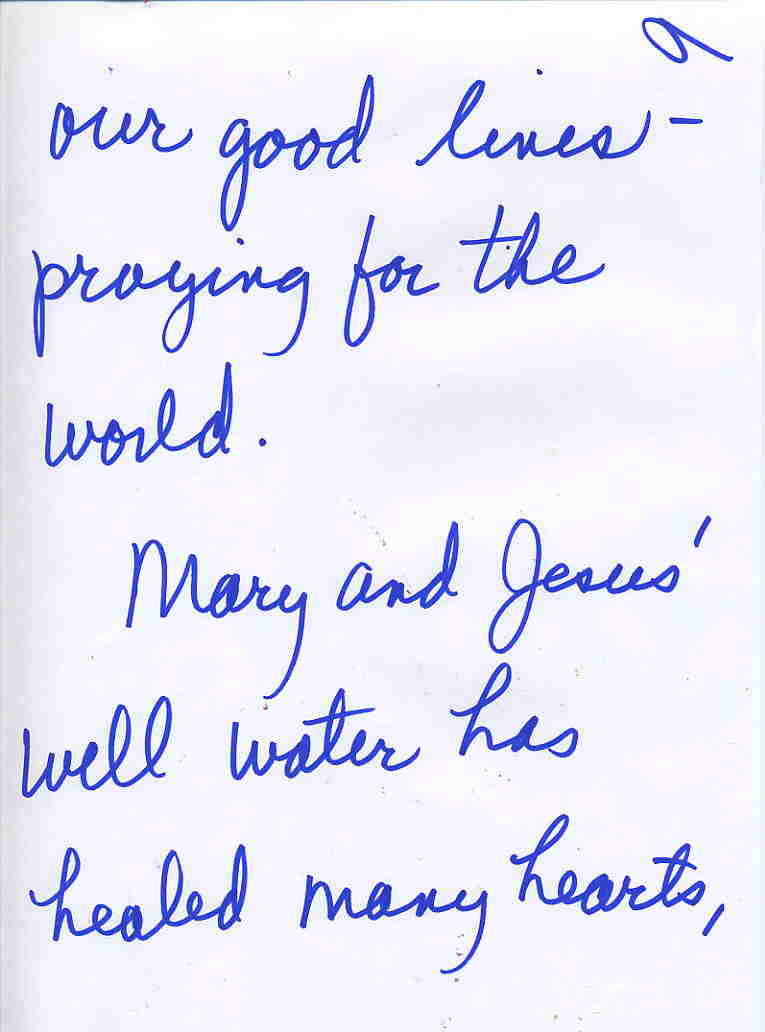 9
our good lives –
praying for the
world.
Mary and Jesus'
well water has
healed many hearts,